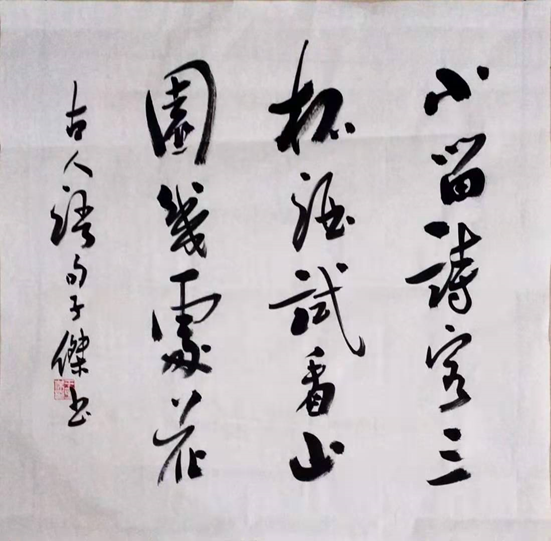 小留詩客三
杯酒試看山
園幾處花
古人語句子傑書